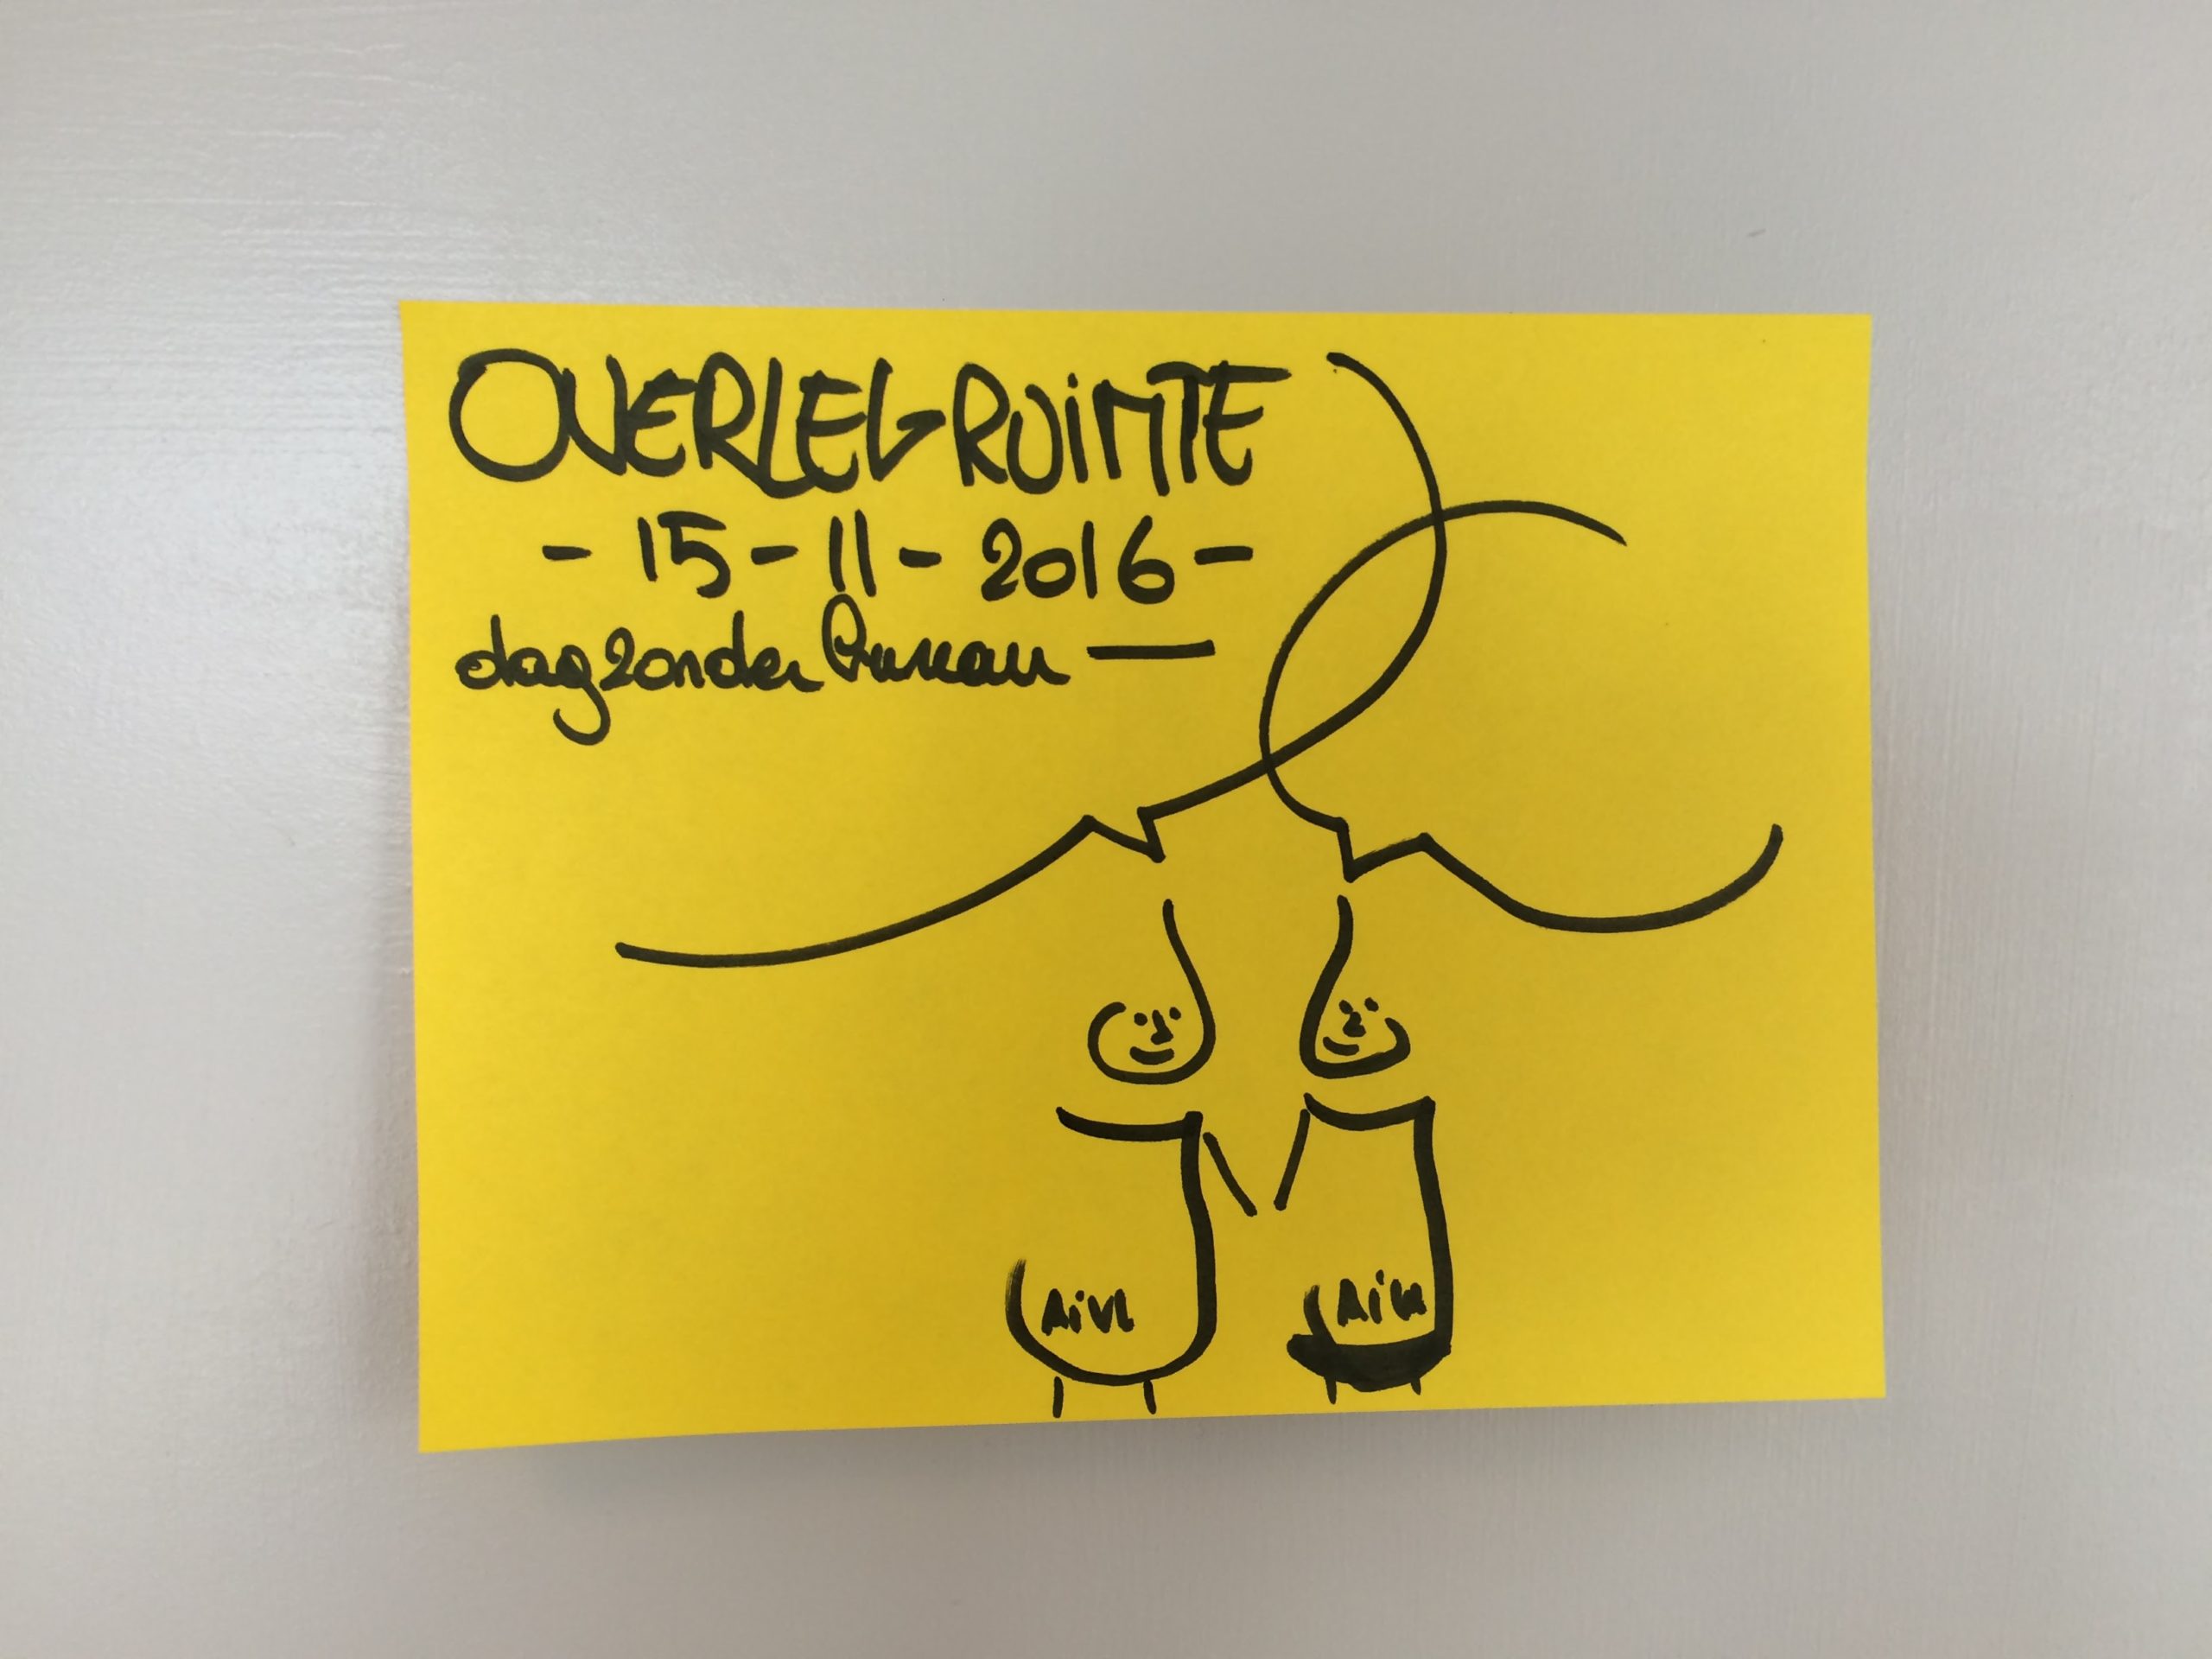 OVERLEGRUIMTE
- 15 - 11 - 2016 -
dag zonder bureau —
AiVL AiVL